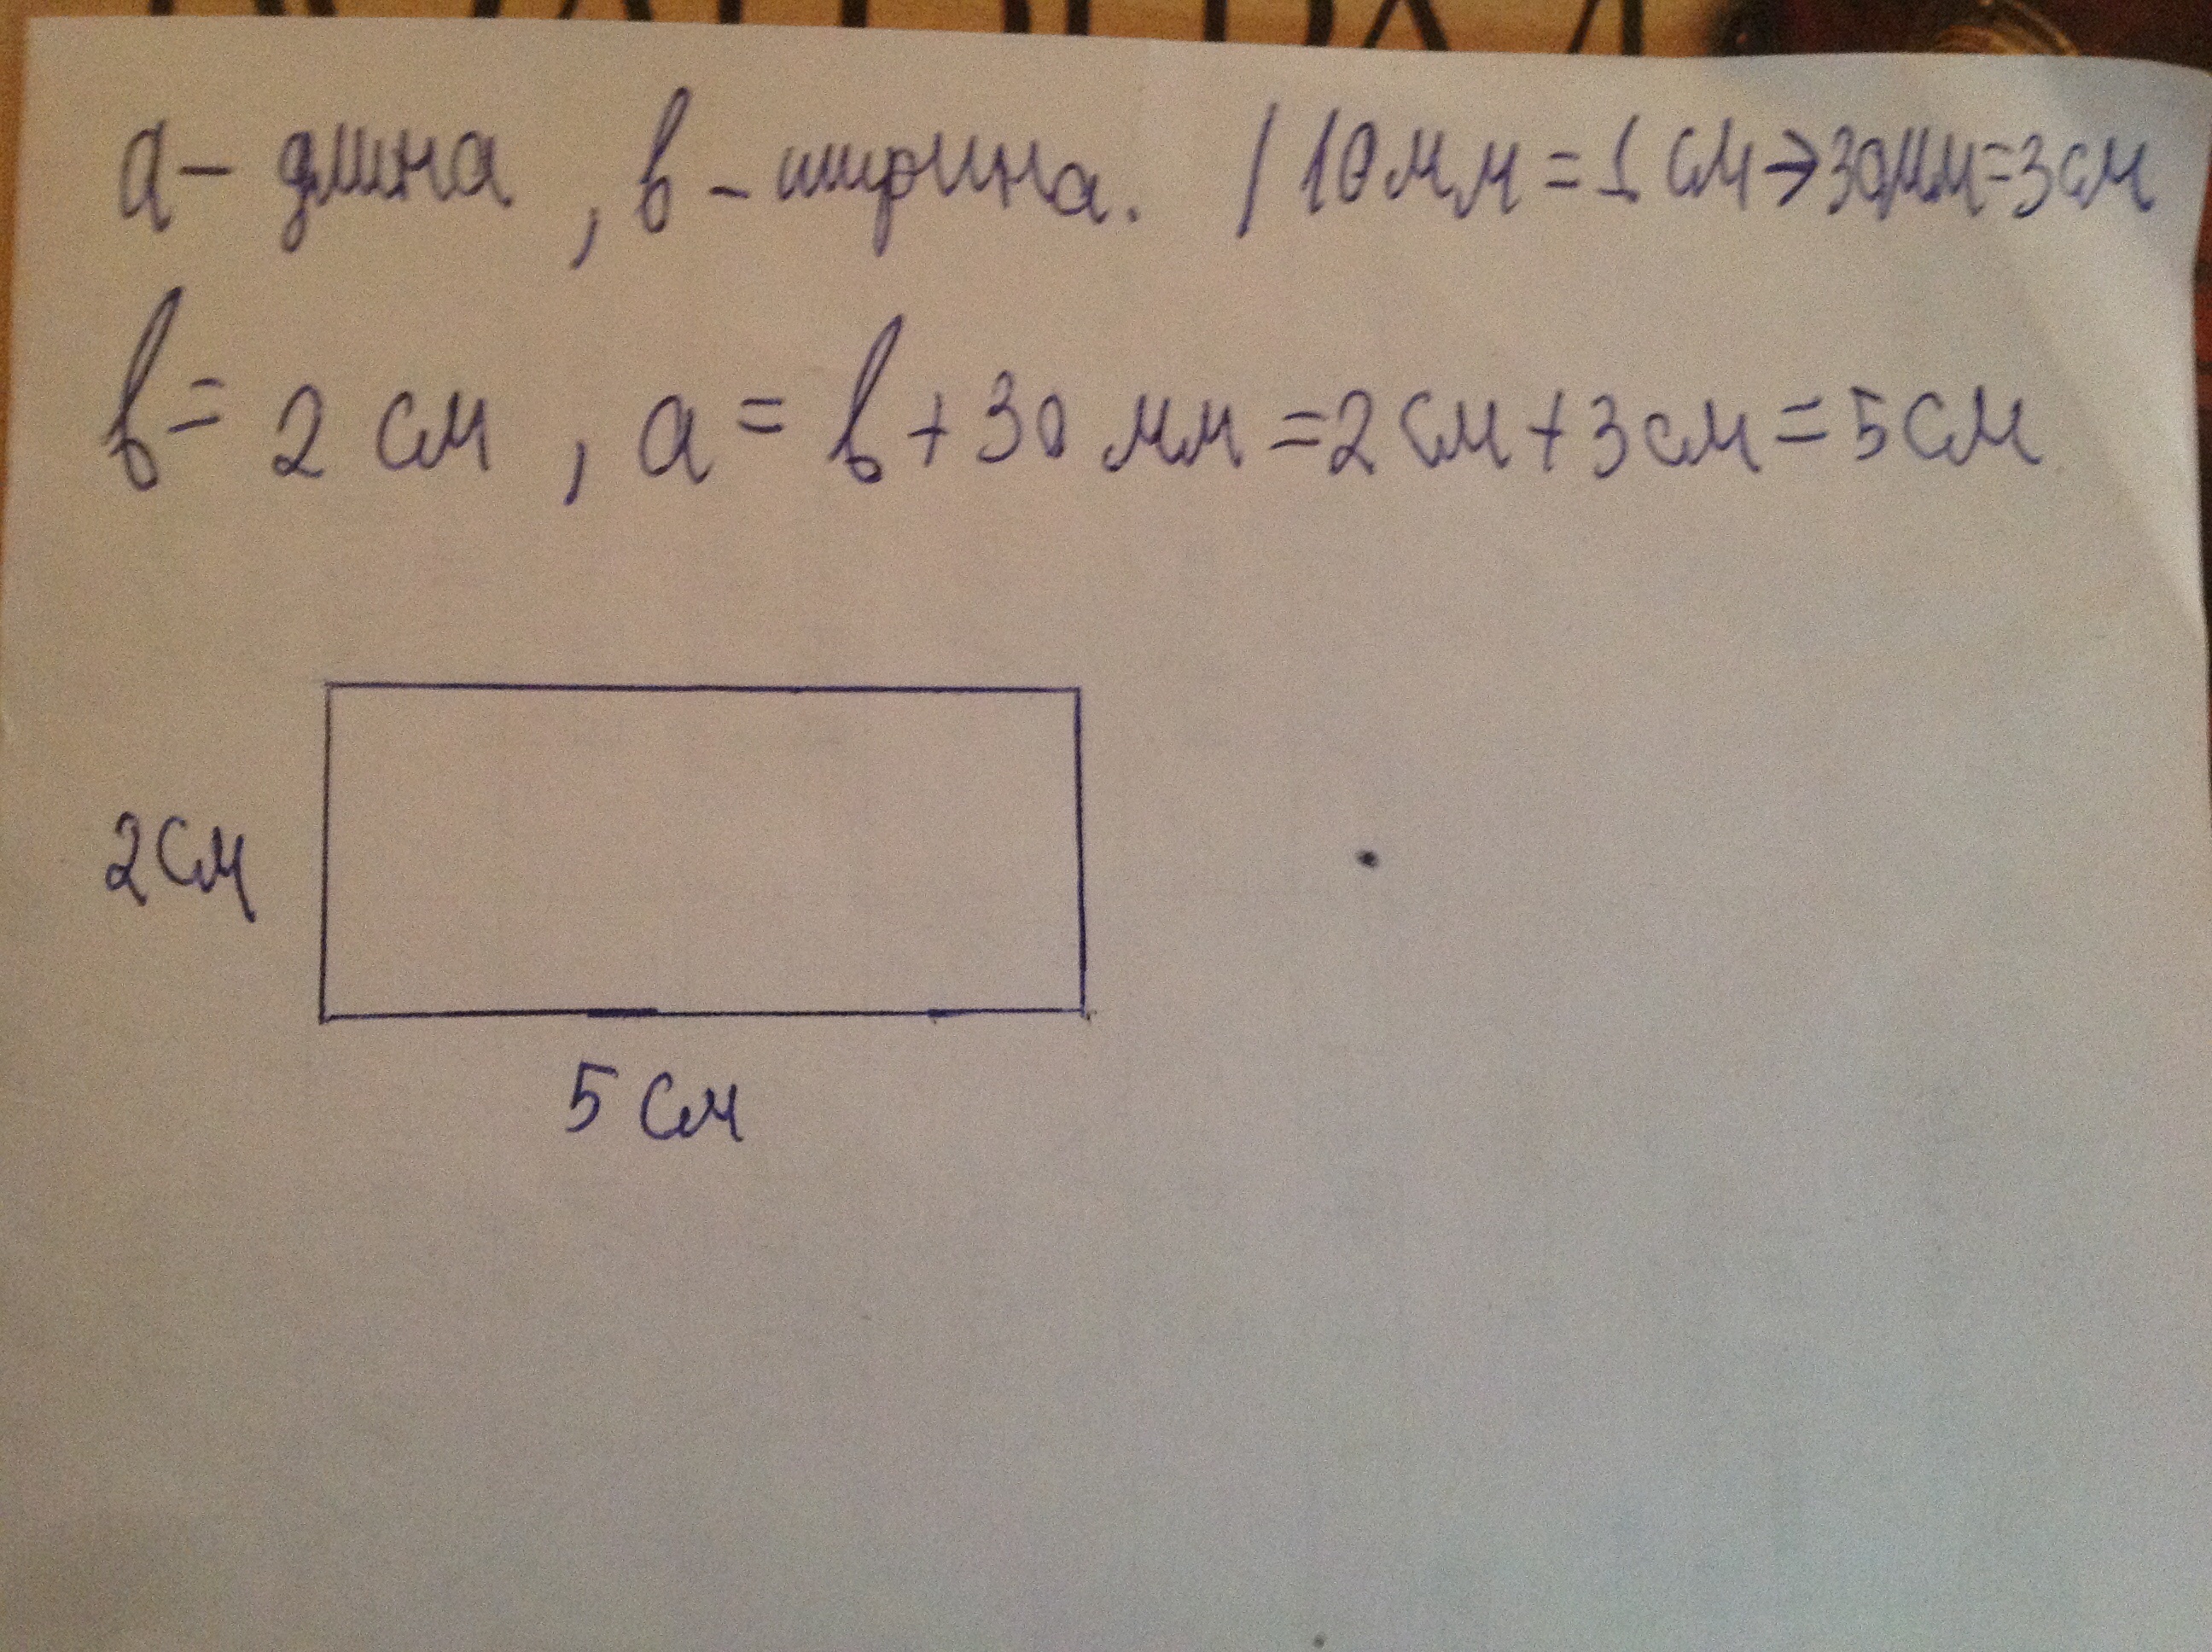 a – длина , в – ширина. / 10 мм = 1 см → 30 мм = 3 см
в = 2 см , а = в + 30 мм = 2 см + 3 см = 5 см
2 см
5 см